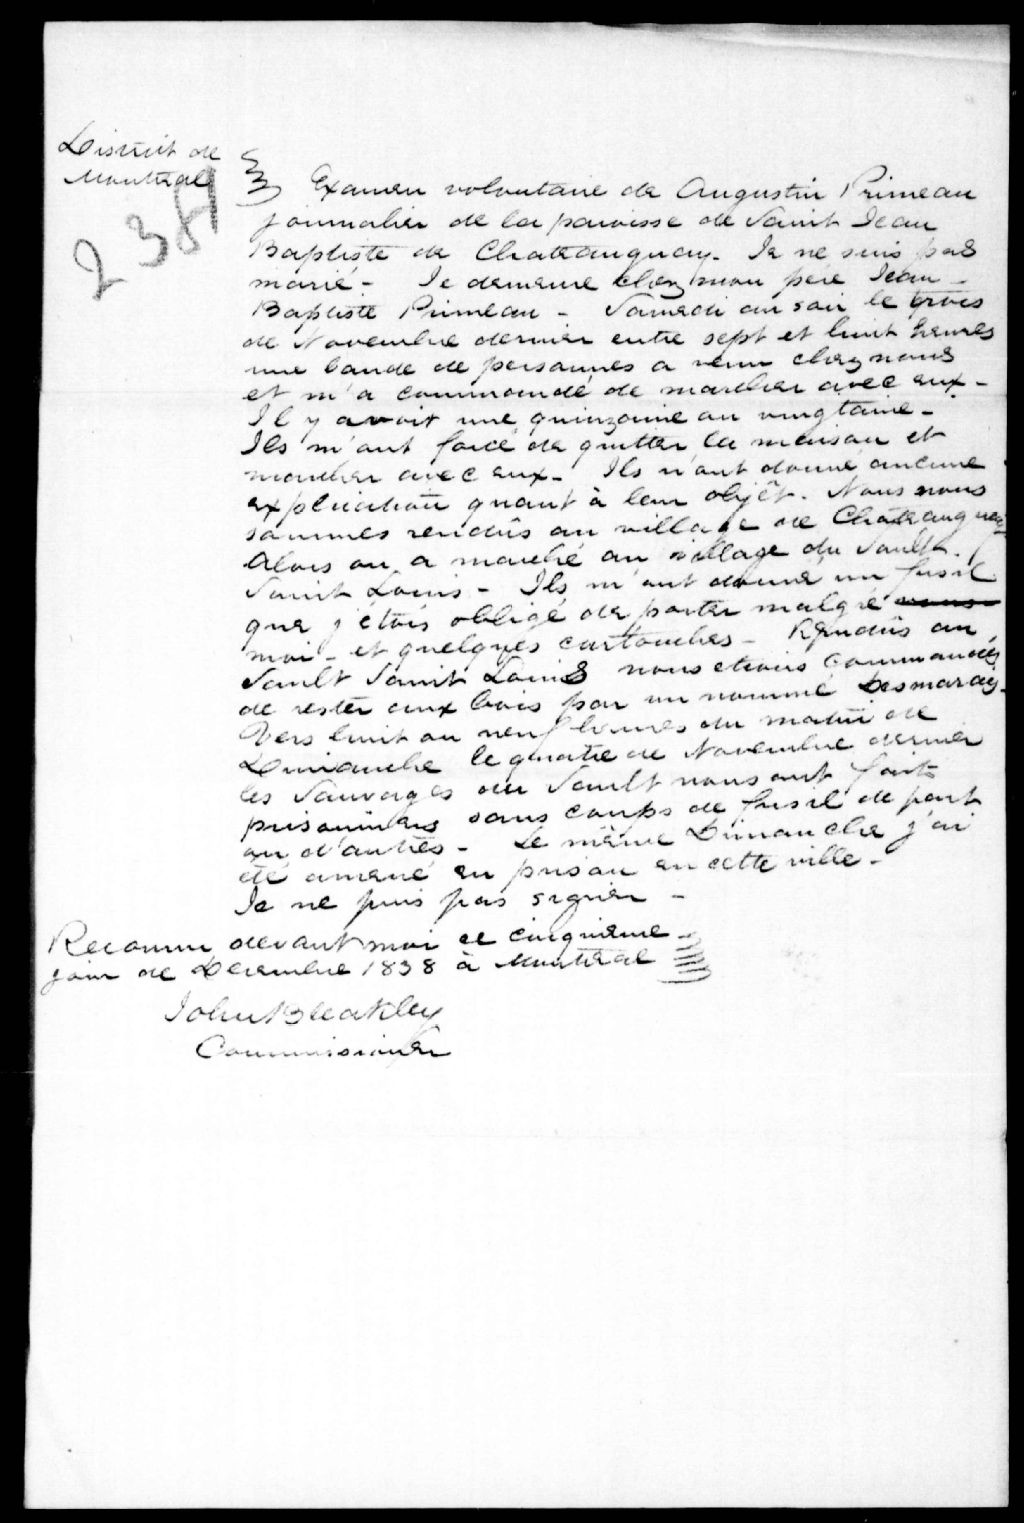 District de
Montreal
2381
Examen volontaire de Augustin Primeau
journalier de la paroisse de Saint Jean
Baptiste de Chateauguay. Je ne suis pas
marié - Je demeure chez mon pere Jean -
Baptiste Primeau - Samedi au soir le trois
de Novembre dernier entre sept et huit heures
une bande de personnes a venu chez nous
et m'a commandé de marcher avec eux -
Il y avoit une quinzaine ou vingtaine -
Ils m'ont forcé de quitter la maison et
marcher avec eux - Ils n'ont donné aucune
explication quant à leur objêt. Nous nous
sommes rendûs au village de Chateauguay
Alors on a marché au village du Sault
Saint Louis - Ils m'ont donné un fusil
que j'étois obligé de porter malgré
moi - et quelques cartouches - Rendûs au
Sault Saint Louis nous etions commandés
de rester aux bois par un nommé Desmarais -
Vers huit ou neuf heures du matin de
Dimanche le quatre de Novembre dernier
les Sauvages du Sault nous ont faits
prisonniers sans coups de fusil de part
ou d'autres - Le même Dimanche j'ai
été amené en prison en cette ville -
Je ne puis pas signer -
Reconnu devant moi ce cinquieme
jour de Decembre 1838 à Montreal
John Bleakley
Commissioner